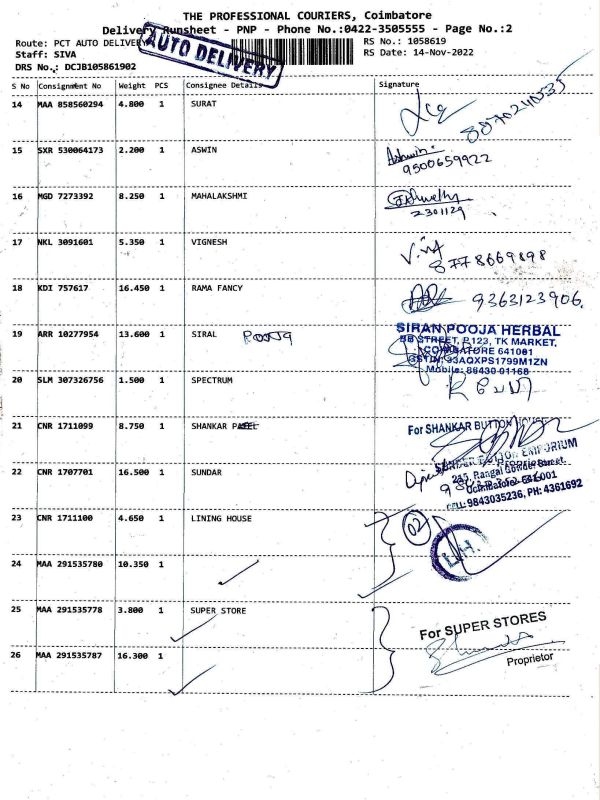 THE PROFESSIONAL COURIERS, Coimbatore
Delivery Runsheet - PNP - Phone No.:0422-3505555 - Page No.:2
Route: PCT AUTO DELIVERY RS No.: 1058619
Staff: SIVA RS Date: 14-Nov-2022
DRS No.: DCJB105861902
AUTO DELIVERY
S No Consignment No Weight PCS Consignee Details Signature
14 MAA 858560294 4.800 1 SURAT
15 SXR 530064173 2.200 1 ASWIN Ashwin.
9500659922
16 MGD 7273392 8.250 1 MAHALAKSHMI
2301129
17 NKL 3091601 5.350 1 VIGNESH
8778669898
18 KDI 757617 16.450 1 RAMA FANCY 9363123906.
19 ARR 10277954 13.600 1 SIRAL POOJA
SIRAN POOJA HERBAL
BB STREET, P.123, TK MARKET,
COIMBATORE 641001
GSTIN: 33AQXPS1799M1ZN
Mobile: 86430 01168
20 SLM 307326756 1.500 1 SPECTRUM
21 CNR 1711099 8.750 1 SHANKAR
For SHANKAR BUTTON HOUSE
22 CNR 1707701 16.500 1 SUNDAR
SUNDER BUTTON EMPORIUM
215, Rangai Gowder Street,
Coimbatore- 641 001
CELL: 9843035236, PH: 4361692
23 CNR 1711100 4.650 1 LINING HOUSE 02
L.H.
24 MAA 291535780 10.350 1
25 MAA 291535778 3.800 1 SUPER STORE
For SUPER STORES
Proprietor
26 MAA 291535787 16.300 1